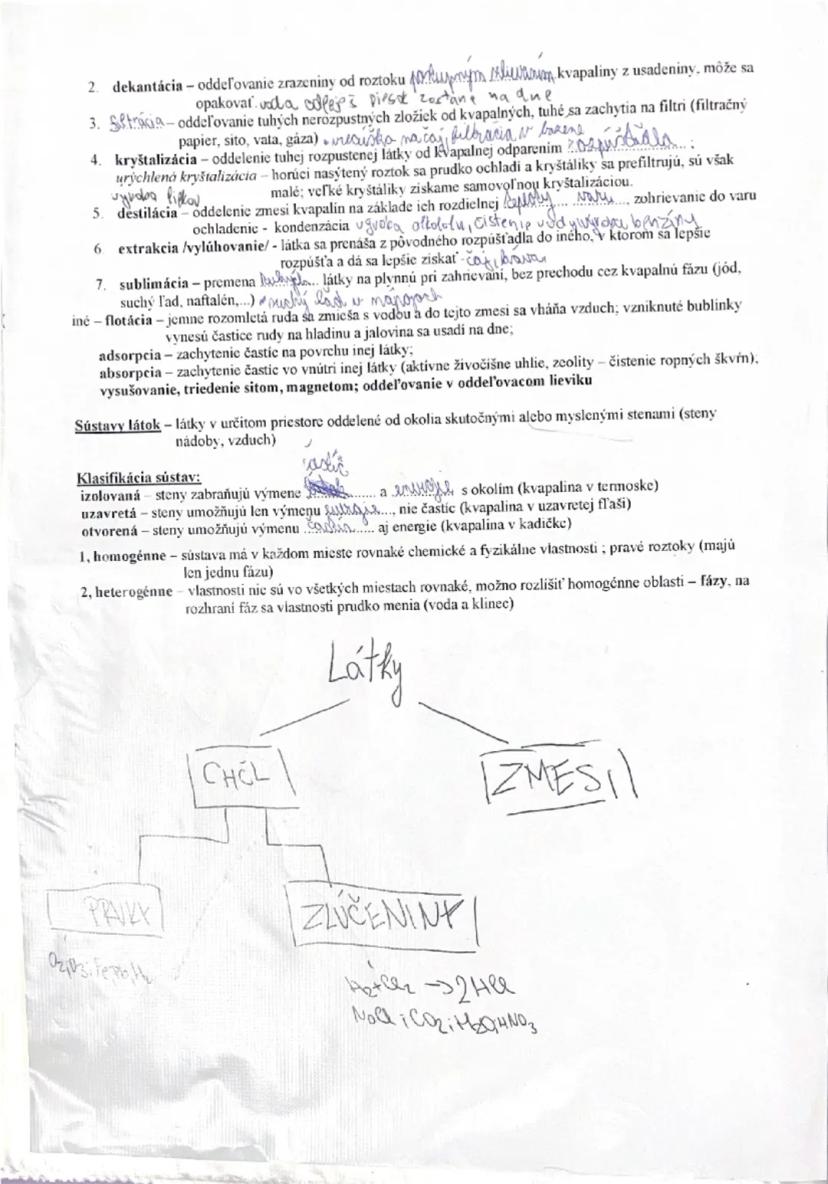 2. dekantácia – oddeľovanie zrazeniny od roztoku postupným zlievaním kvapaliny z usadeniny, môže sa
opakovať. voda odleješ piesok zostane na dne
3. filtrácia – oddeľovanie tuhých nerozpustných zložiek od kvapalných, tuhé sa zachytia na filtri (filtračný
papier, sito, vata, gáza) vrecúško na čaj, filtrácia v bazéne
4. kryštalizácia – oddelenie tuhej rozpustenej látky od kvapalnej odparením rozpúšťadla ;
urýchlená kryštalizácia – horúci nasýtený roztok sa prudko ochladí a kryštáliky sa prefiltrujú, sú však
výroba malé; veľké kryštáliky získame samovoľnou kryštalizáciou.
5. destilácia – oddelenie zmesi kvapalín na základe ich rozdielnej teploty varu , zohrievanie do varu
ochladenie - kondenzácia výroba alkoholu, čistenie vody, výroba benzíny
6 extrakcia /vylúhovanie/ - látka sa prenáša z pôvodného rozpúšťadla do iného, v ktorom sa lepšie
rozpúšťa a dá sa lepšie získať - čaj, káva
7. sublimácia – premena tuhej látky na plynnú pri zahrievaní, bez prechodu cez kvapalnú fázu (jód,
suchý ľad, naftalén,...) suchý ľad v nápojoch
iné – flotácia – jemne rozomletá ruda sa zmieša s vodou a do tejto zmesi sa vháňa vzduch; vzniknuté bublinky
vynesú častice rudy na hladinu a jalovina sa usadí na dne;
adsorpcia – zachytenie častíc na povrchu inej látky;
absorpcia – zachytenie častíc vo vnútri inej látky (aktívne živočíšne uhlie, zeolity – čistenie ropných škvŕn);
vysušovanie, triedenie sitom, magnetom; oddeľovanie v oddeľovacom lieviku
Sústavy látok – látky v určitom priestore oddelené od okolia skutočnými alebo myslenými stenami (steny
nádoby, vzduch)
Klasifikácia sústav:
častíc
izolovaná – steny zabraňujú výmene ........ a energie s okolím (kvapalina v termoske)
uzavretá – steny umožňujú len výmenu energie..., nie častíc (kvapalina v uzavretej fľaši)
otvorená – steny umožňujú výmenu ...častíc..... aj energie (kvapalina v kadičke)
1, homogénne – sústava má v každom mieste rovnaké chemické a fyzikálne vlastnosti ; pravé roztoky (majú
len jednu fázu)
2, heterogénne – vlastnosti nie sú vo všetkých miestach rovnaké, možno rozlíšiť homogénne oblasti – fázy, na
rozhraní fáz sa vlastnosti prudko menia (voda a klinec)
Látky
CHČL
ZMESI
PRVKY
ZLÚČENINY
O2, O3, Fe, Pb, H2
H2+Cl2 → 2HCl
NaCl ; CO2 ; H2O, HNO3